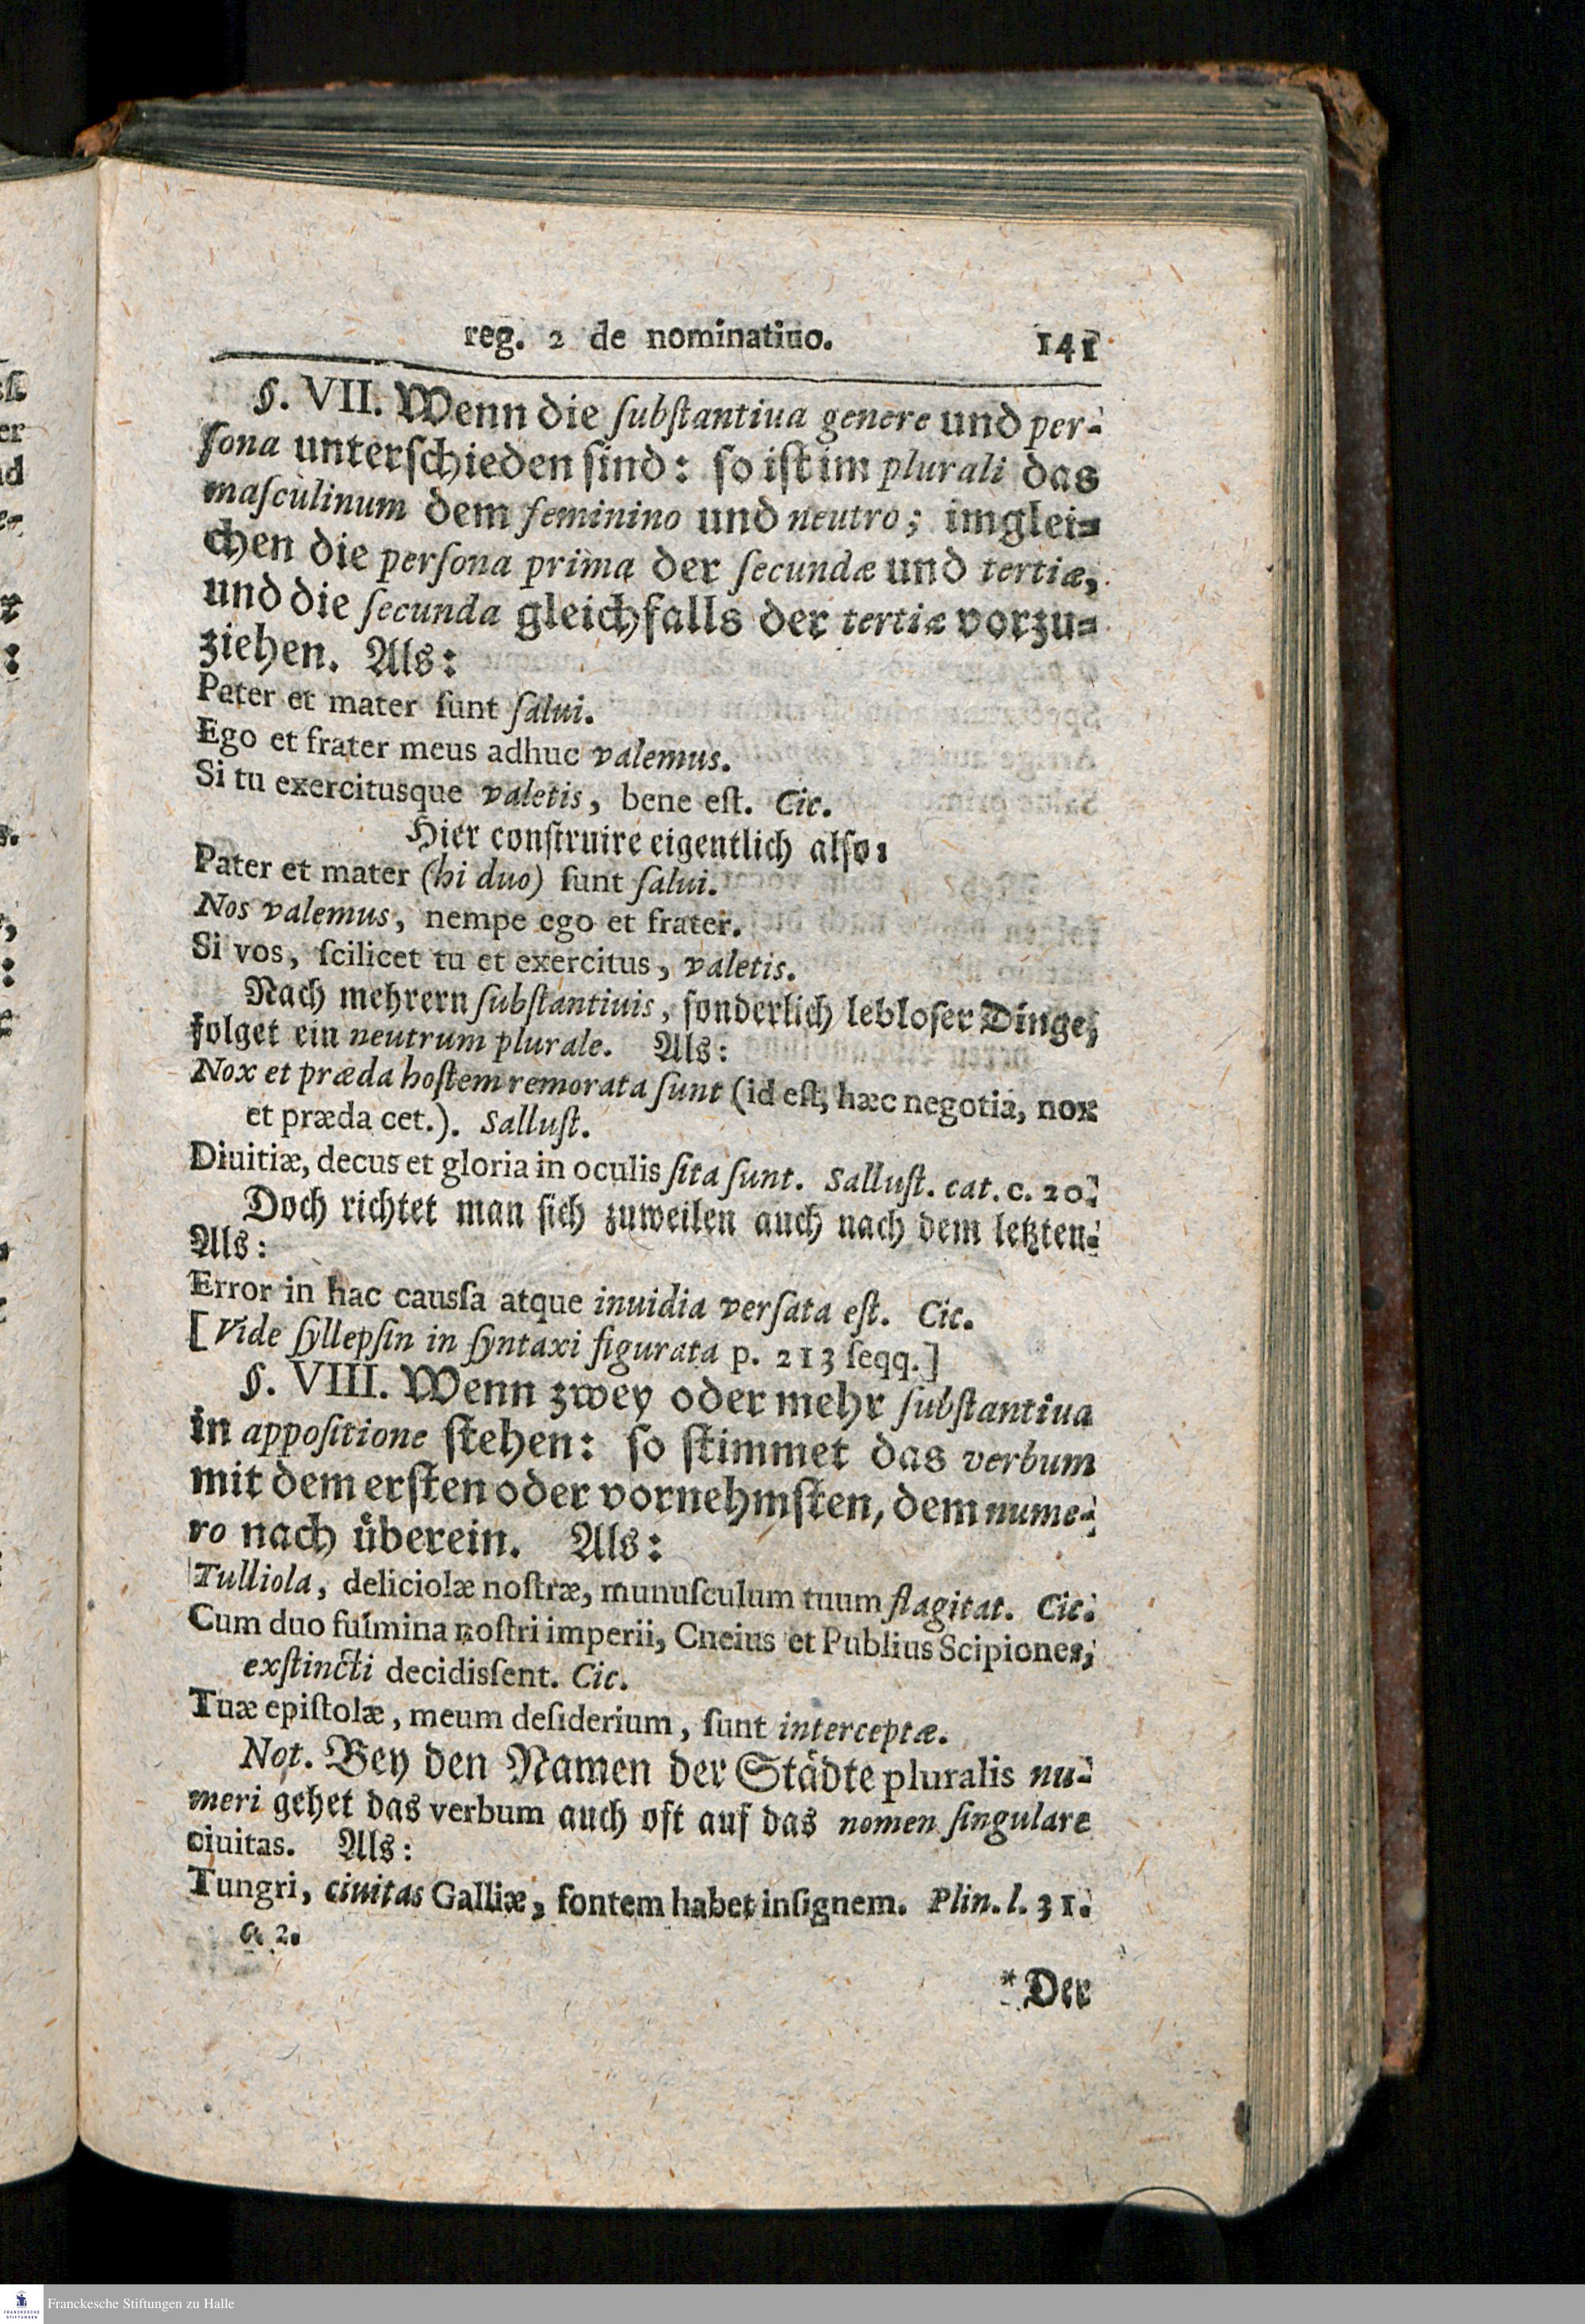 reg. 2 de nominatiuo. 141
§. VII. Wenn die ſubſtantiua genere und per-
ſona unterſchieden ſind: ſo iſt im plurali das
maſculinum dem feminino und neutro; imglei-
chen die perſona prima der ſecundæ und tertiæ,
und die ſecunda gleichfalls der tertiæ vorzu-
ziehen. Als:
Pater et mater ſunt ſalui.
Ego et frater meus adhuc valemus.
Si tu exercitusque valetis, bene eſt. Cic.
Hier conſtruire eigentlich alſo:
Pater et mater (hi duo) ſunt ſalui.
Nos valemus, nempe ego et frater.
Si vos, ſcilicet tu et exercitus, valetis.
Nach mehrern ſubſtantiuis, ſonderlich lebloſer Dinge,
folget ein neutrum plurale. Als:
Nox et præda hoſtem remorata ſunt (id eſt, hæc negotia, nox
et præda cet.). Salluſt.
Diuitiæ, decus et gloria in oculis ſita ſunt. Salluſt. cat. c. 20.
Doch richtet man ſich zuweilen auch nach dem letzten.
Als:
Error in hac causſa atque inuidia verſata eſt. Cic.
[Vide ſyllepſin in ſyntaxi figurata p. 213 ſeqq.]
§. VIII. Wenn zwey oder mehr ſubſtantiua
in appoſitione ſtehen: ſo ſtimmet das verbum
mit dem erſten oder vornehmſten, dem nume-
ro nach überein. Als:
Tulliola, deliciolæ noſtræ, munuſculum tuum flagitat. Cic.
Cum duo fulmina noſtri imperii, Cneius et Publius Scipiones,
exſtincti decidisſent. Cic.
Tuæ epiſtolæ, meum deſiderium, ſunt interceptæ.
Not. Bey den Namen der Städte pluralis nu-
meri gehet das verbum auch oft auf das nomen ſingulare
ciuitas. Als:
Tungri, ciuitas Galliæ, fontem habet inſignem. Plin. l. 31.
c. 2.
*Der
Franckesche Stiftungen zu Halle